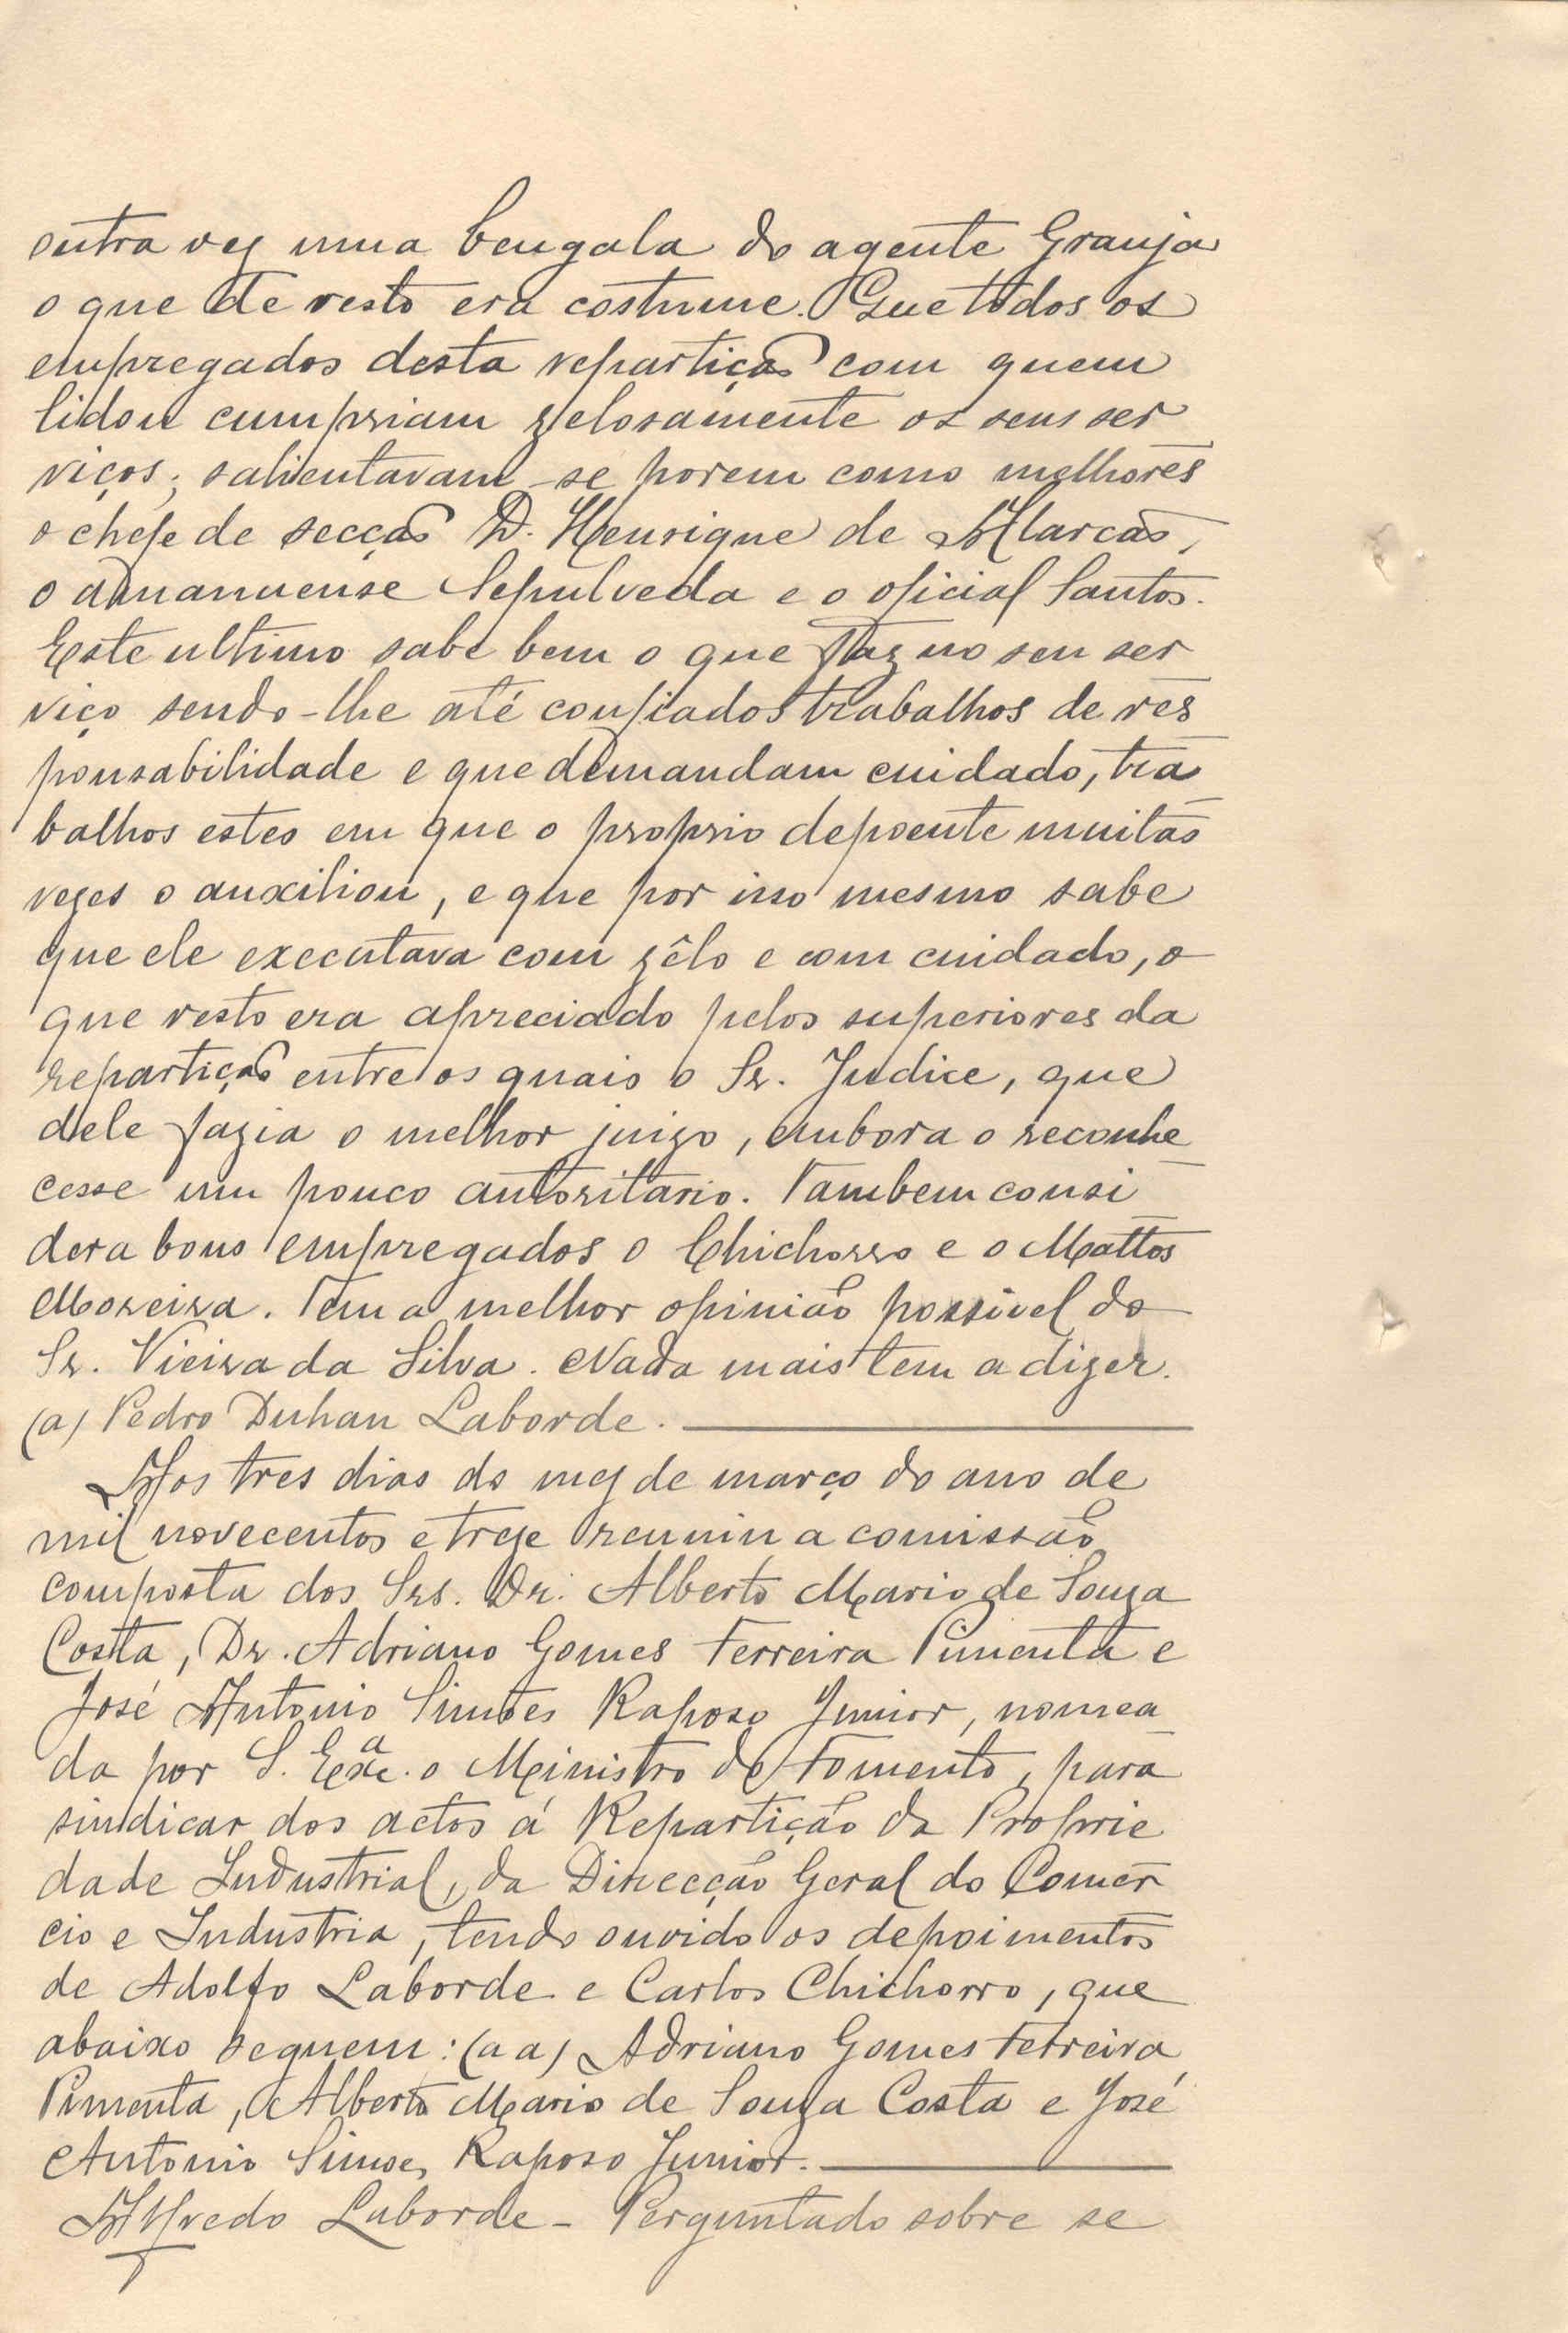 outra vez uma bengala do agente Granja
o que de resto era costume. Que todos os
empregados desta repartição com quem
lidou cumpriam zelosamente os seus ser
viços; salientavam-se porem como melhores
o chefe de secção D. Henrique de Alarcão,
o amanuense Sepulveda e o oficial Santos.
Este ultimo sabe bem o que faz no seu ser
viço sendo-lhe até confiados trabalhos de res
ponsabilidade e que demandam cuidado, tra
balhos estes em que o proprio depoente muitas
vezes o auxiliou, e que por isso mesmo sabe
que ele executava com zêlo e com cuidado, o
que resto era apreciado pelos superiores da
repartição entre os quais o Sr. Judice, que
dele fazia o melhor juizo, embora o reconhe
cesse um pouco autoritario. Tambem consi
dera bons empregados o Chichorro e o Mattos
Moreira. Tem a melhor opinião possivel do
Sr. Vieira da Silva. Nada mais tem a dizer.
(a) Pedro Duhan Laborde.
Aos tres dias do mez de março do ano de
mil novecentos e treze reuniu a comissão
composta dos Srs. Dr. Alberto Mario de Souza
Costa, Dr. Adriano Gomes Ferreira Pimenta e
José Antonio Simões Raposo Junior, nomea
da por S. Exª. o Ministro do Fomento, para
sindicar dos actos á Repartição da Proprie
dade Industrial, da Direcção Geral do Comer
cio e Industria, tendo ouvido os depoimentos
de Adolfo Laborde e Carlos Chichorro, que
abaixo seguem: (a a) Adriano Gomes Ferreira
Pimenta, Alberto Mario de Souza Costa e José
Antonio Simões Raposo Junior.
Alfredo Laborde - Perguntado sobre se